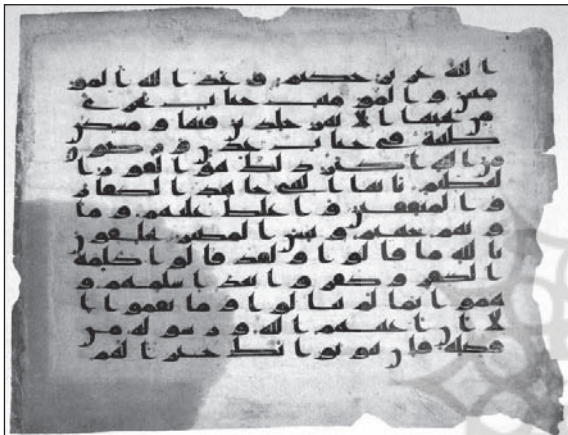 الله عزيز حكيم وعد الله المو
منين والمومنت جنت تجري
من تحتها الانهر خلدين فيها ومسكن
طيبة في جنت عدن ورضون
من الله اكبر ذلك هو الفوز ا
لعظيم يايها النبي جاهد الكفار
والمنفقين واغلظ عليهم وما
ويهم جهنم وبيس المصير يحلفون
بالله ما قالوا ولقد قالوا كلمة
الكفر وكفروا بعد اسلمهم و
هموا بما لم ينالوا وما نقموا ا
لا ان اغنيهم الله ورسوله من
فضله فان يتوبوا يك خيرا لهم